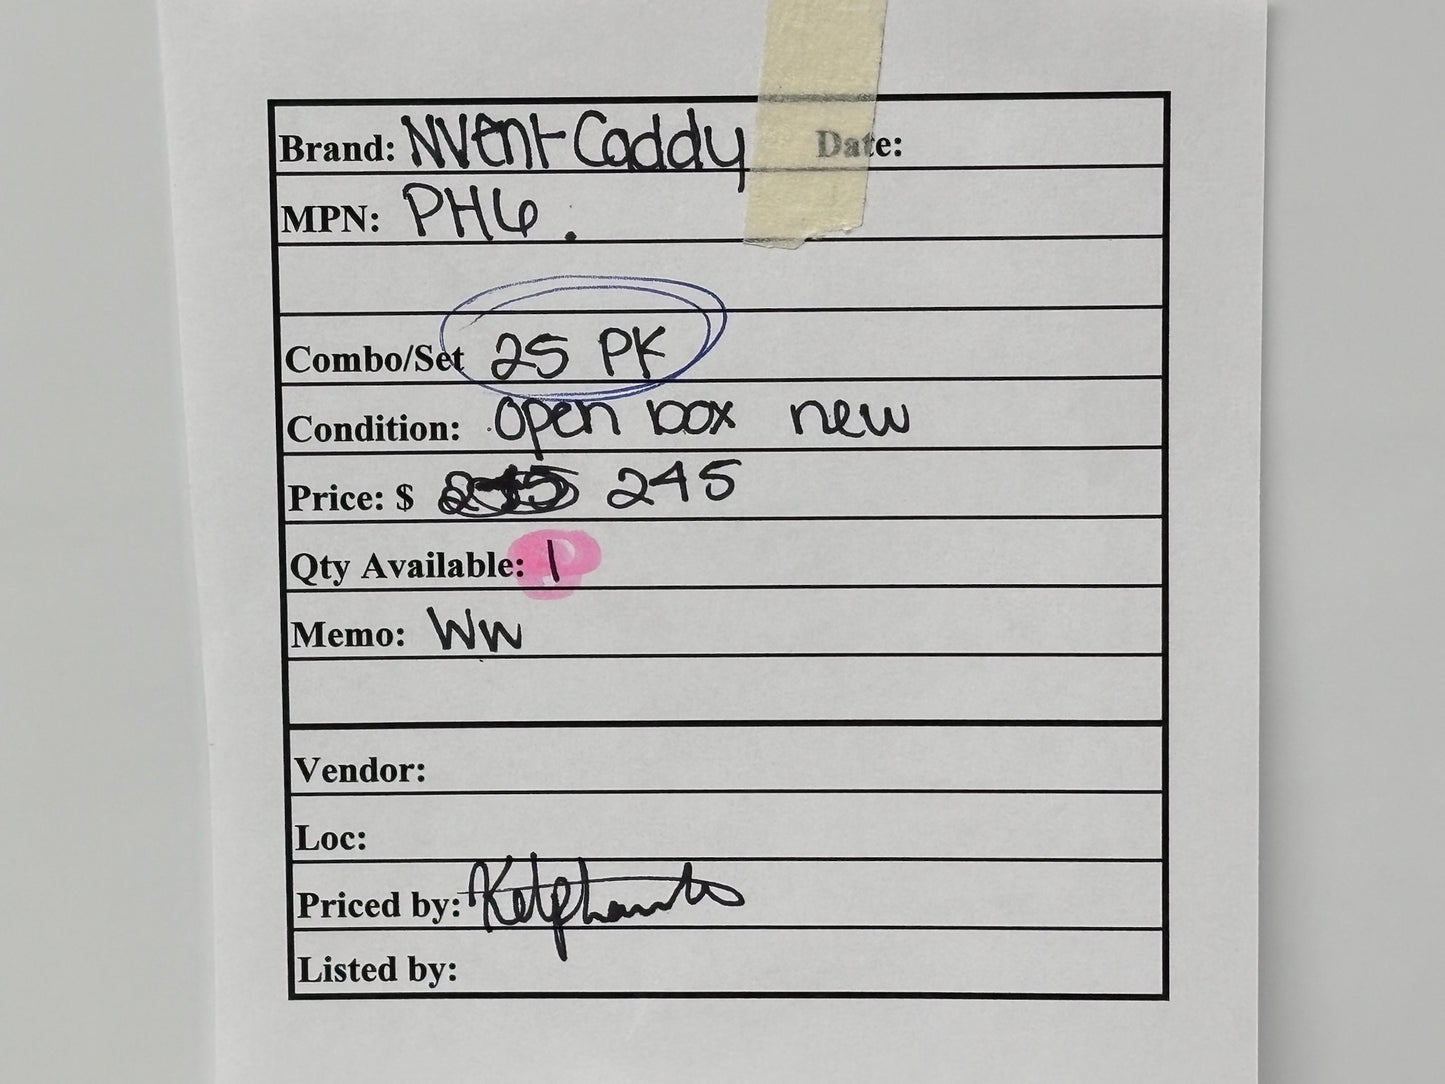 Brand: NVent Caddy Date:
MPN: PH6.
Combo/Set 25 PK
Condition: open box new
Price: $ 245
Qty Available: 1
Memo: WW
Vendor:
Loc:
Priced by:
Listed by: